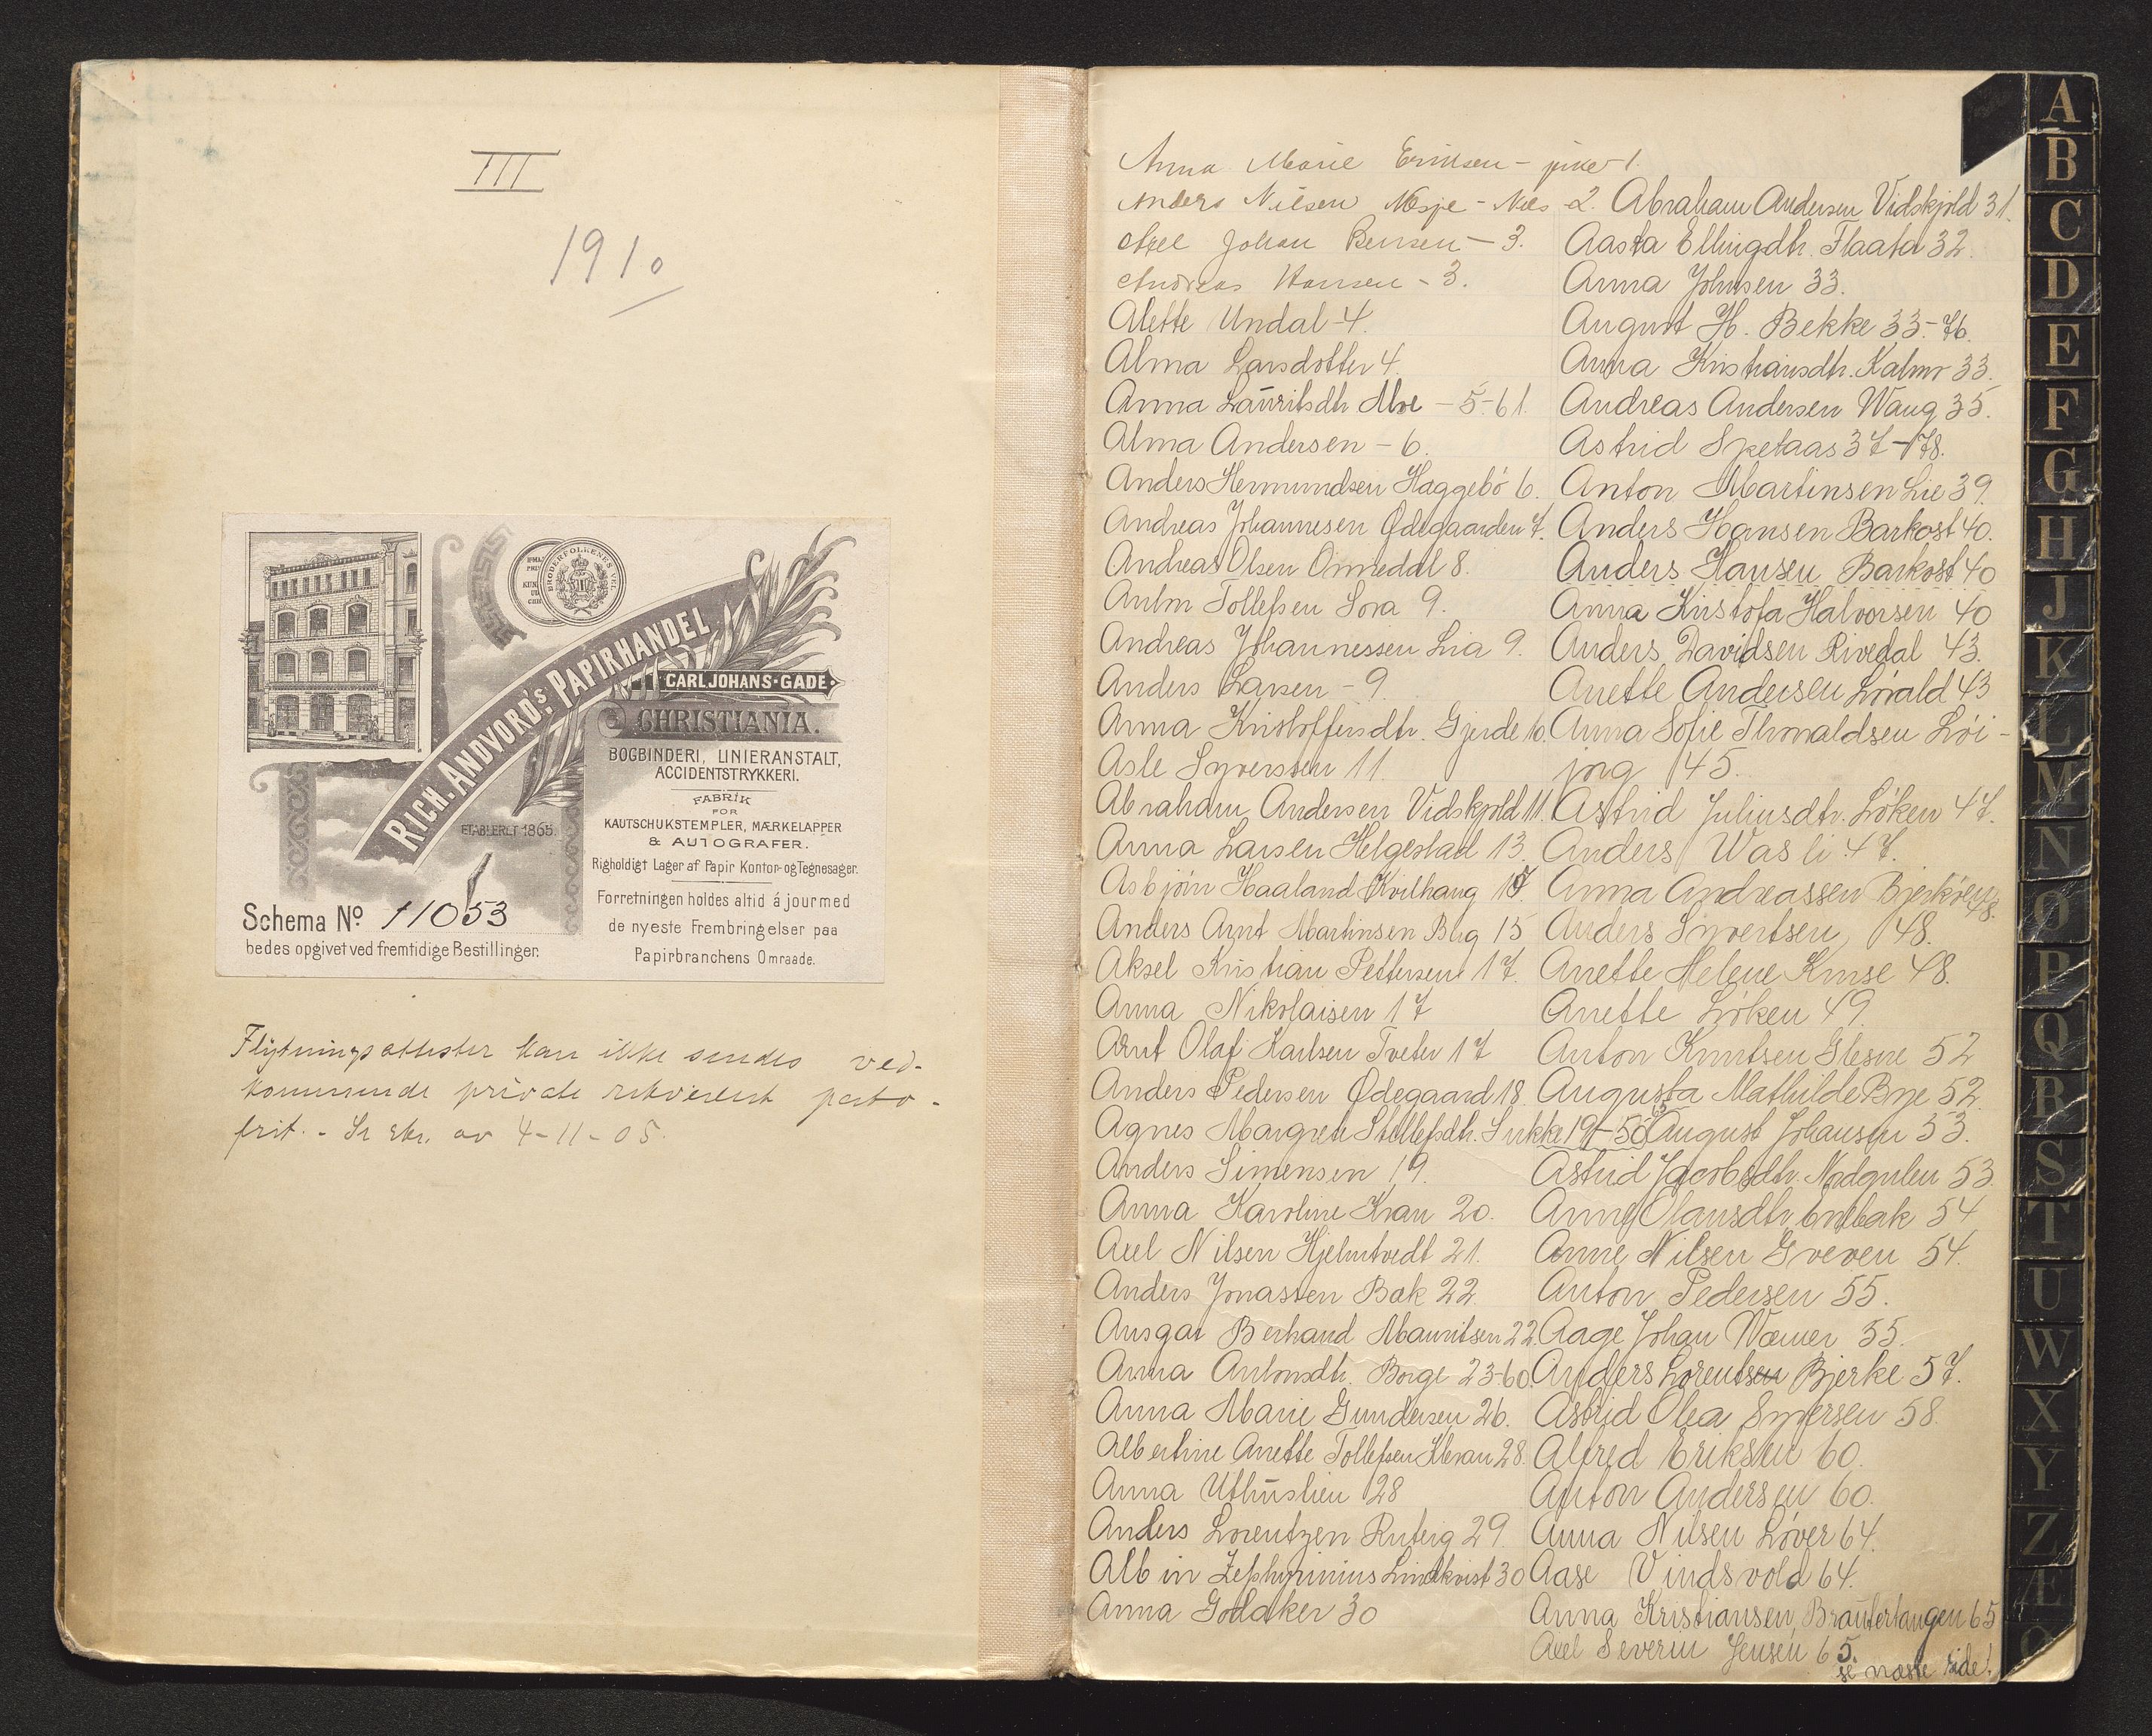 III
1910
BRODERFOLKENES VEL
RICH. ANDVORD'S PAPIRHANDEL
CARL JOHANS-GADE
CHRISTIANIA.
BOGBINDERI, LINIERANSTALT,
ACCIDENTSTRYKKERI.
FABRIK
FOR
KAUTSCHUKSTEMPLER, MÆRKELAPPER
& AUTOGRAFER.
ETABLERET 1865.
Righoldigt Lager af Papir Kontor- og Tegnesager.
Forretningen holdes altid á jour med
de nyeste Frembringelser paa
Papirbranchens Omraade.
Schema No 11053
bedes opgivet ved fremtidige Bestillinger.
Flytningsattester kan ikke sendes ved-
kommende private rekvirent porto-
frit. - Se skr. av 4-11-05.
Anna Marie Eriksen - pike - 1.
Anders Nilsen - 2.
Axel Johan Bensen - 3.
Andreas Hansen - 3.
Alette Undal - 4.
Alma Larsdotter 4.
Anna Lauritsdtr Moe - 5 - 61.
Alma Andersen - 6.
Anders Hermundsen Haggebö 6.
Andreas Johannesen Ødegaarden 7.
Andreas Olsen Omnedal 8.
Anton Tollefsen Lora 9.
Andreas Johannessen Lia 9.
Anders Larsen - 9.
Anna Kristoffersdtr. Gjerde 10.
Asle Syverssen 11.
Abraham Andersen Vidskjold 11.
Anna Larsen Helgestad 13.
Asbjörn Haaland Kvilhaug
Anders Arnt Martinsen Berg 15
Aksel Kristian Pettersen 17.
Anna Nikolaisen 17
Arnt Olaf Karlsen Tveter 17
Anders Pedersen Ødegaard 18.
Agnes Margrete 19 - 50
Anders Simensen 19.
Anna Karoline Kran 20.
Axel Nilsen Hjelmtvedt 21.
Anders Jonassen Bak 22.
Ansgar Berhard Mauritsen 22.
Anna Antonsdtr. Borge 23-60.
Anna Marie Gundersen 26.
Albertine Anette Tollefsen 28.
Anna Uthuslien 28
Anders Lorentzen 29.
Albin Zephyrinius Lindkvist 30
Anna Godaker 30
Abraham Andersen Vidskjold 31.
Aasta Ellingsdtr. Flaata 32.
Anna Johnsen 33.
August H. Bekke 33 - 76.
Anna Kristiansdtr. Kalmo 33.
Andreas Andersen Wang 35.
Astrid Spetaas 37 - 78.
Anton Martinsen Lie 39.
Anders Hansen Barkost 40.
Anders Hansen Barkost 40
Anna Kristofa Halvorsen 40
Anders Davidsen Rivedal 43.
Anette Andersen Lövald 43
Anna Sofie Thorvaldsen Löi-
jorg 45.
Astrid Juliusdtr. Löken 47.
Anders Wasli 47.
Anna Andreassen 48.
Anders Syvertsen 48.
Anette Helene Kruse 48.
Anette Löken 49.
Anton Knutsen Glesne 52
Augusta Mathilde Bye 52.
August Johansen 53.
Astrid Jacobsdtr. Nodgulen 53.
Anne Olausdtr. Enebak 54
Anne Nilsen Greven 54.
Anton Pedersen 55.
Aage Johan 55.
Anders Lorentsen Bjerke 57.
Astrid Olea Syversen 58.
Alfred Eriksen 60.
Anton Andersen 60.
Anna Nilsen Löver 64.
Aase Vindsvold 64.
Anna Kristiansen Brautertangen 65
Axel Severin Jensen 65.
se næste side!
A
B
C
D
E
F
G
H
J
K
L
M
N
O
P
Q
R
S
T
U
W
X
Y
Z
Æ
Ø